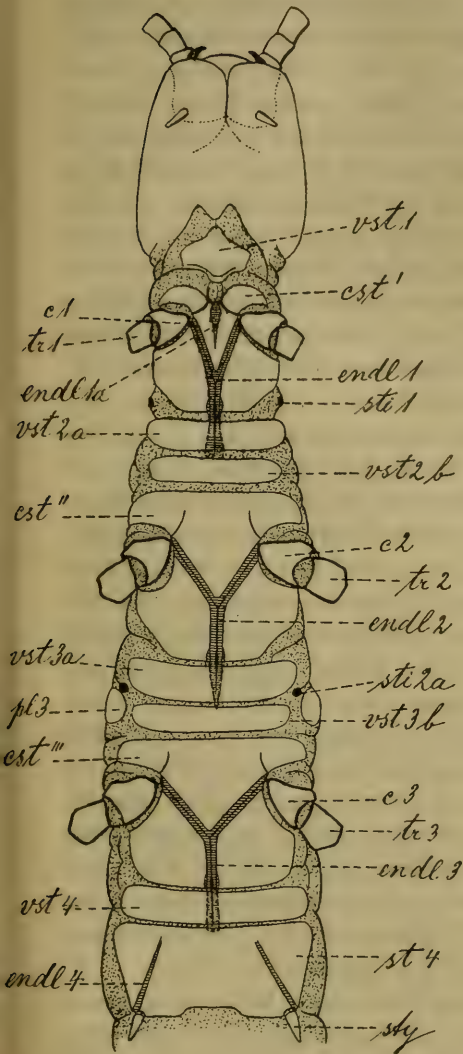 vst 1
cst'
c1
tr1
endl 1a
endl 1
sti 1
vst 2a
vst 2b
cst"
c2
tr2
endl 2
vst 3a
sti 2a
pl3
vst 3b
cst'''
c3
tr3
endl. 3
vst 4
endl. 4
st 4
sty